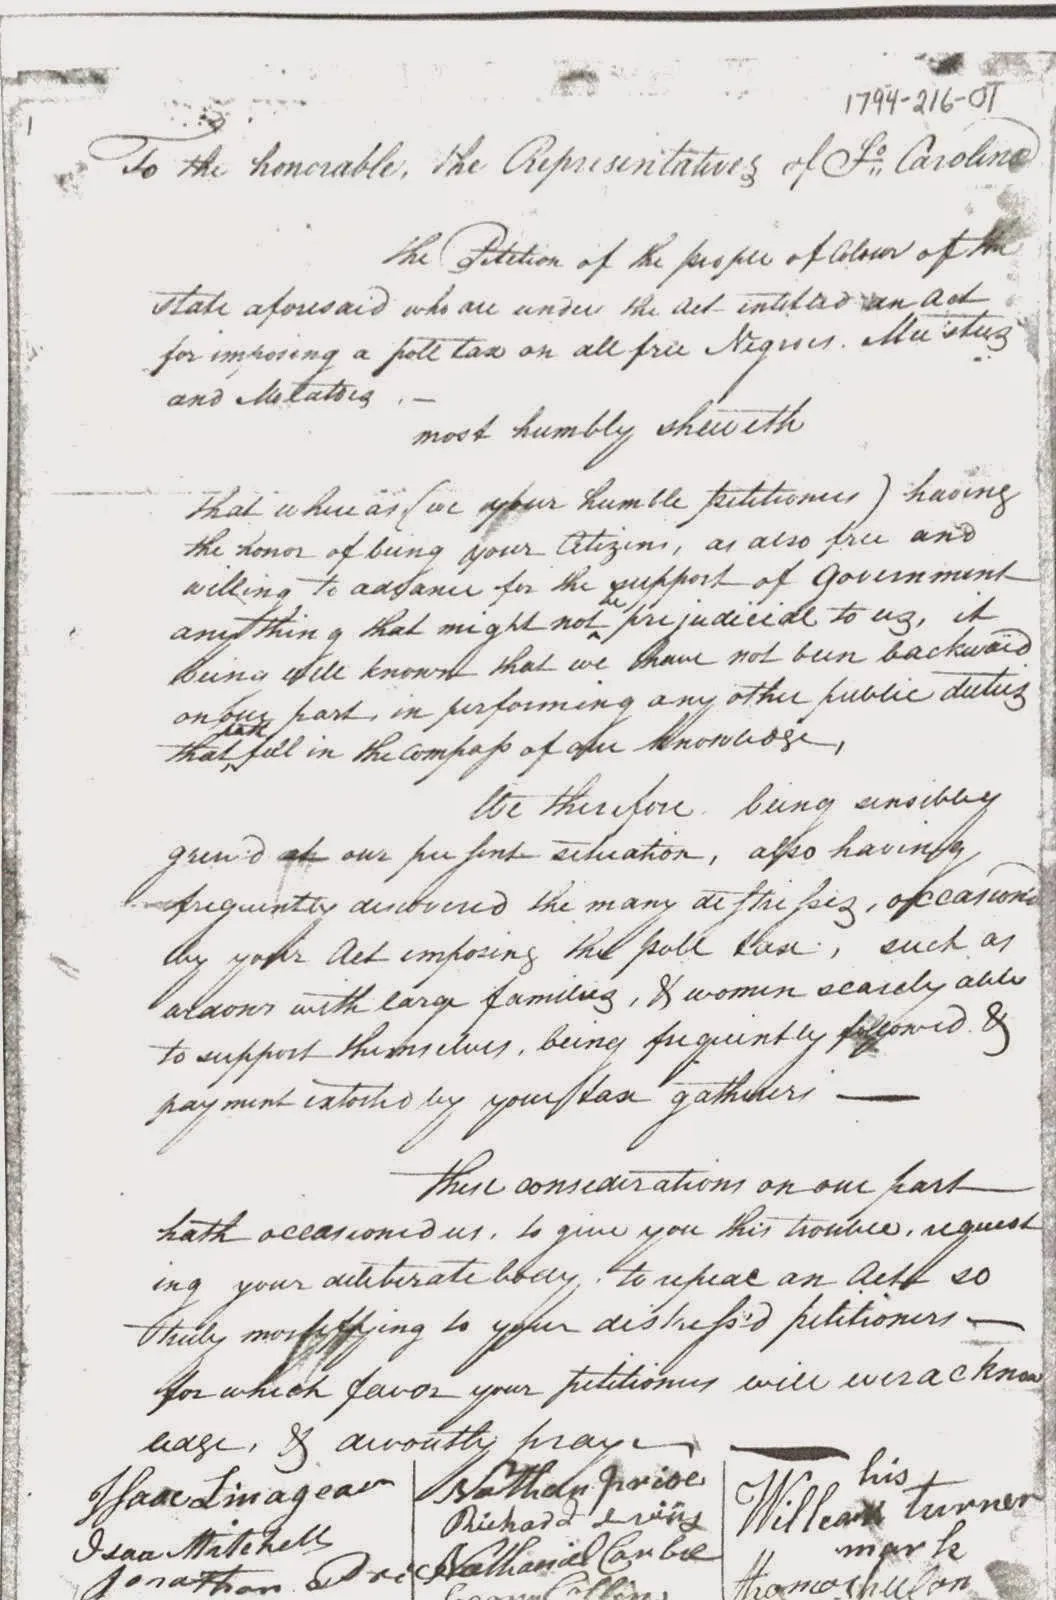 1794-216-01
1
To the honorable, the Representatives of So. Carolina
the Petition of the people of Colour of the
state aforesaid who are under the Act intitled an Act
for imposing a poll tax on all free Negroes. Mustees
and Molatoes . —
most humbly sheweth
that whereas (we your humble petitioners) having
the honor of being your Citizens, as also free and
willing to advance for the support of Government
anything that might not be prejudicial to us, it
being well known that we have not been backward
on our part, in performing any other public duties
that hath fell in the compass of our knowledge,
We therefore. being sensibly
griev'd at our present situation, also having
frequently discovered the many distresses, occasion'd
by your Act imposing the poll tax, such as
widows with large families, & women scarcely able
to support themselves, being frequently followed &
payment extorted by your tax gatherers —
these considerations on our part
hath occasioned us, to give you this trouble, request
ing your deliberate body, to repeal an Act so
truly mortifying to your distress'd petitioners —
for which favor your petitioners will ever acknow
ledge, & devoutly pray —
Isaac Linagear
Isaa Mitchell
Jonathan Price
Nathan price
Richard
Nathaniel Combs
his
William turner
mark